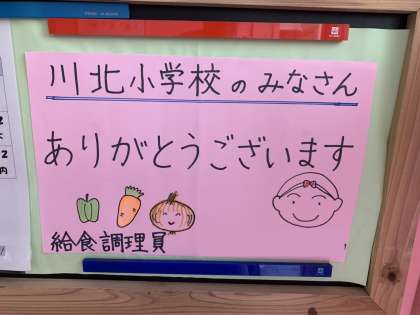 川北小学校のみなさん
ありがとうございます
給食調理員